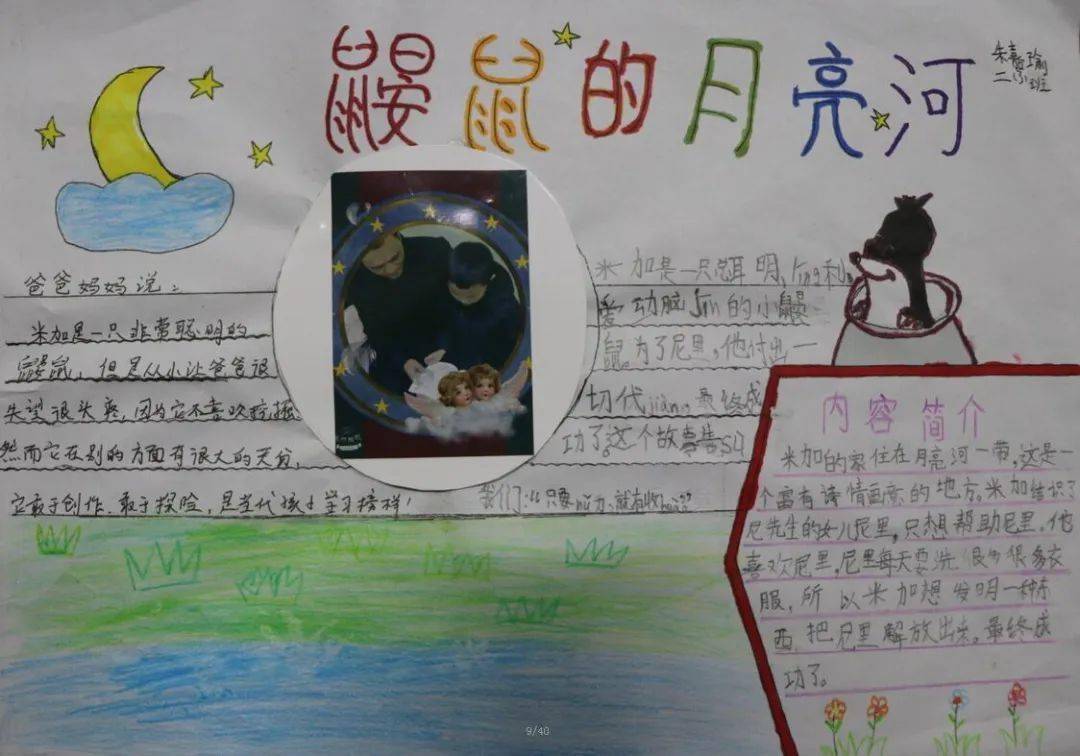 鼹鼠的月亮河
朱嘉瑜
二(3)班
爸爸妈妈说：
米加是一只非常聪明的
鼹鼠，但是从小让爸爸很
失望很头疼，因为它不喜欢挖掘，
然而它在别的方面有很大的天分，
它敢于创作、敢于探险，是当代孩子学习榜样！
米加是一只聪明，líng利，
爱动脑jīn的小鼹
鼠。为了尼里，他付出一
切代jiàn，最终成
功了。这个故事告sù
我们：“只要nǔ力，就有收huò”
内容简介
米加的家住在月亮河一带，这是一
个富有诗情画意的地方。米加结识了
尼先生的女儿尼里，只想帮助尼里，他
喜欢尼里，尼里每天要洗很多很多衣
服，所以米加想发明一种东
西，把尼里解放出来，最终成
功了。
9/40